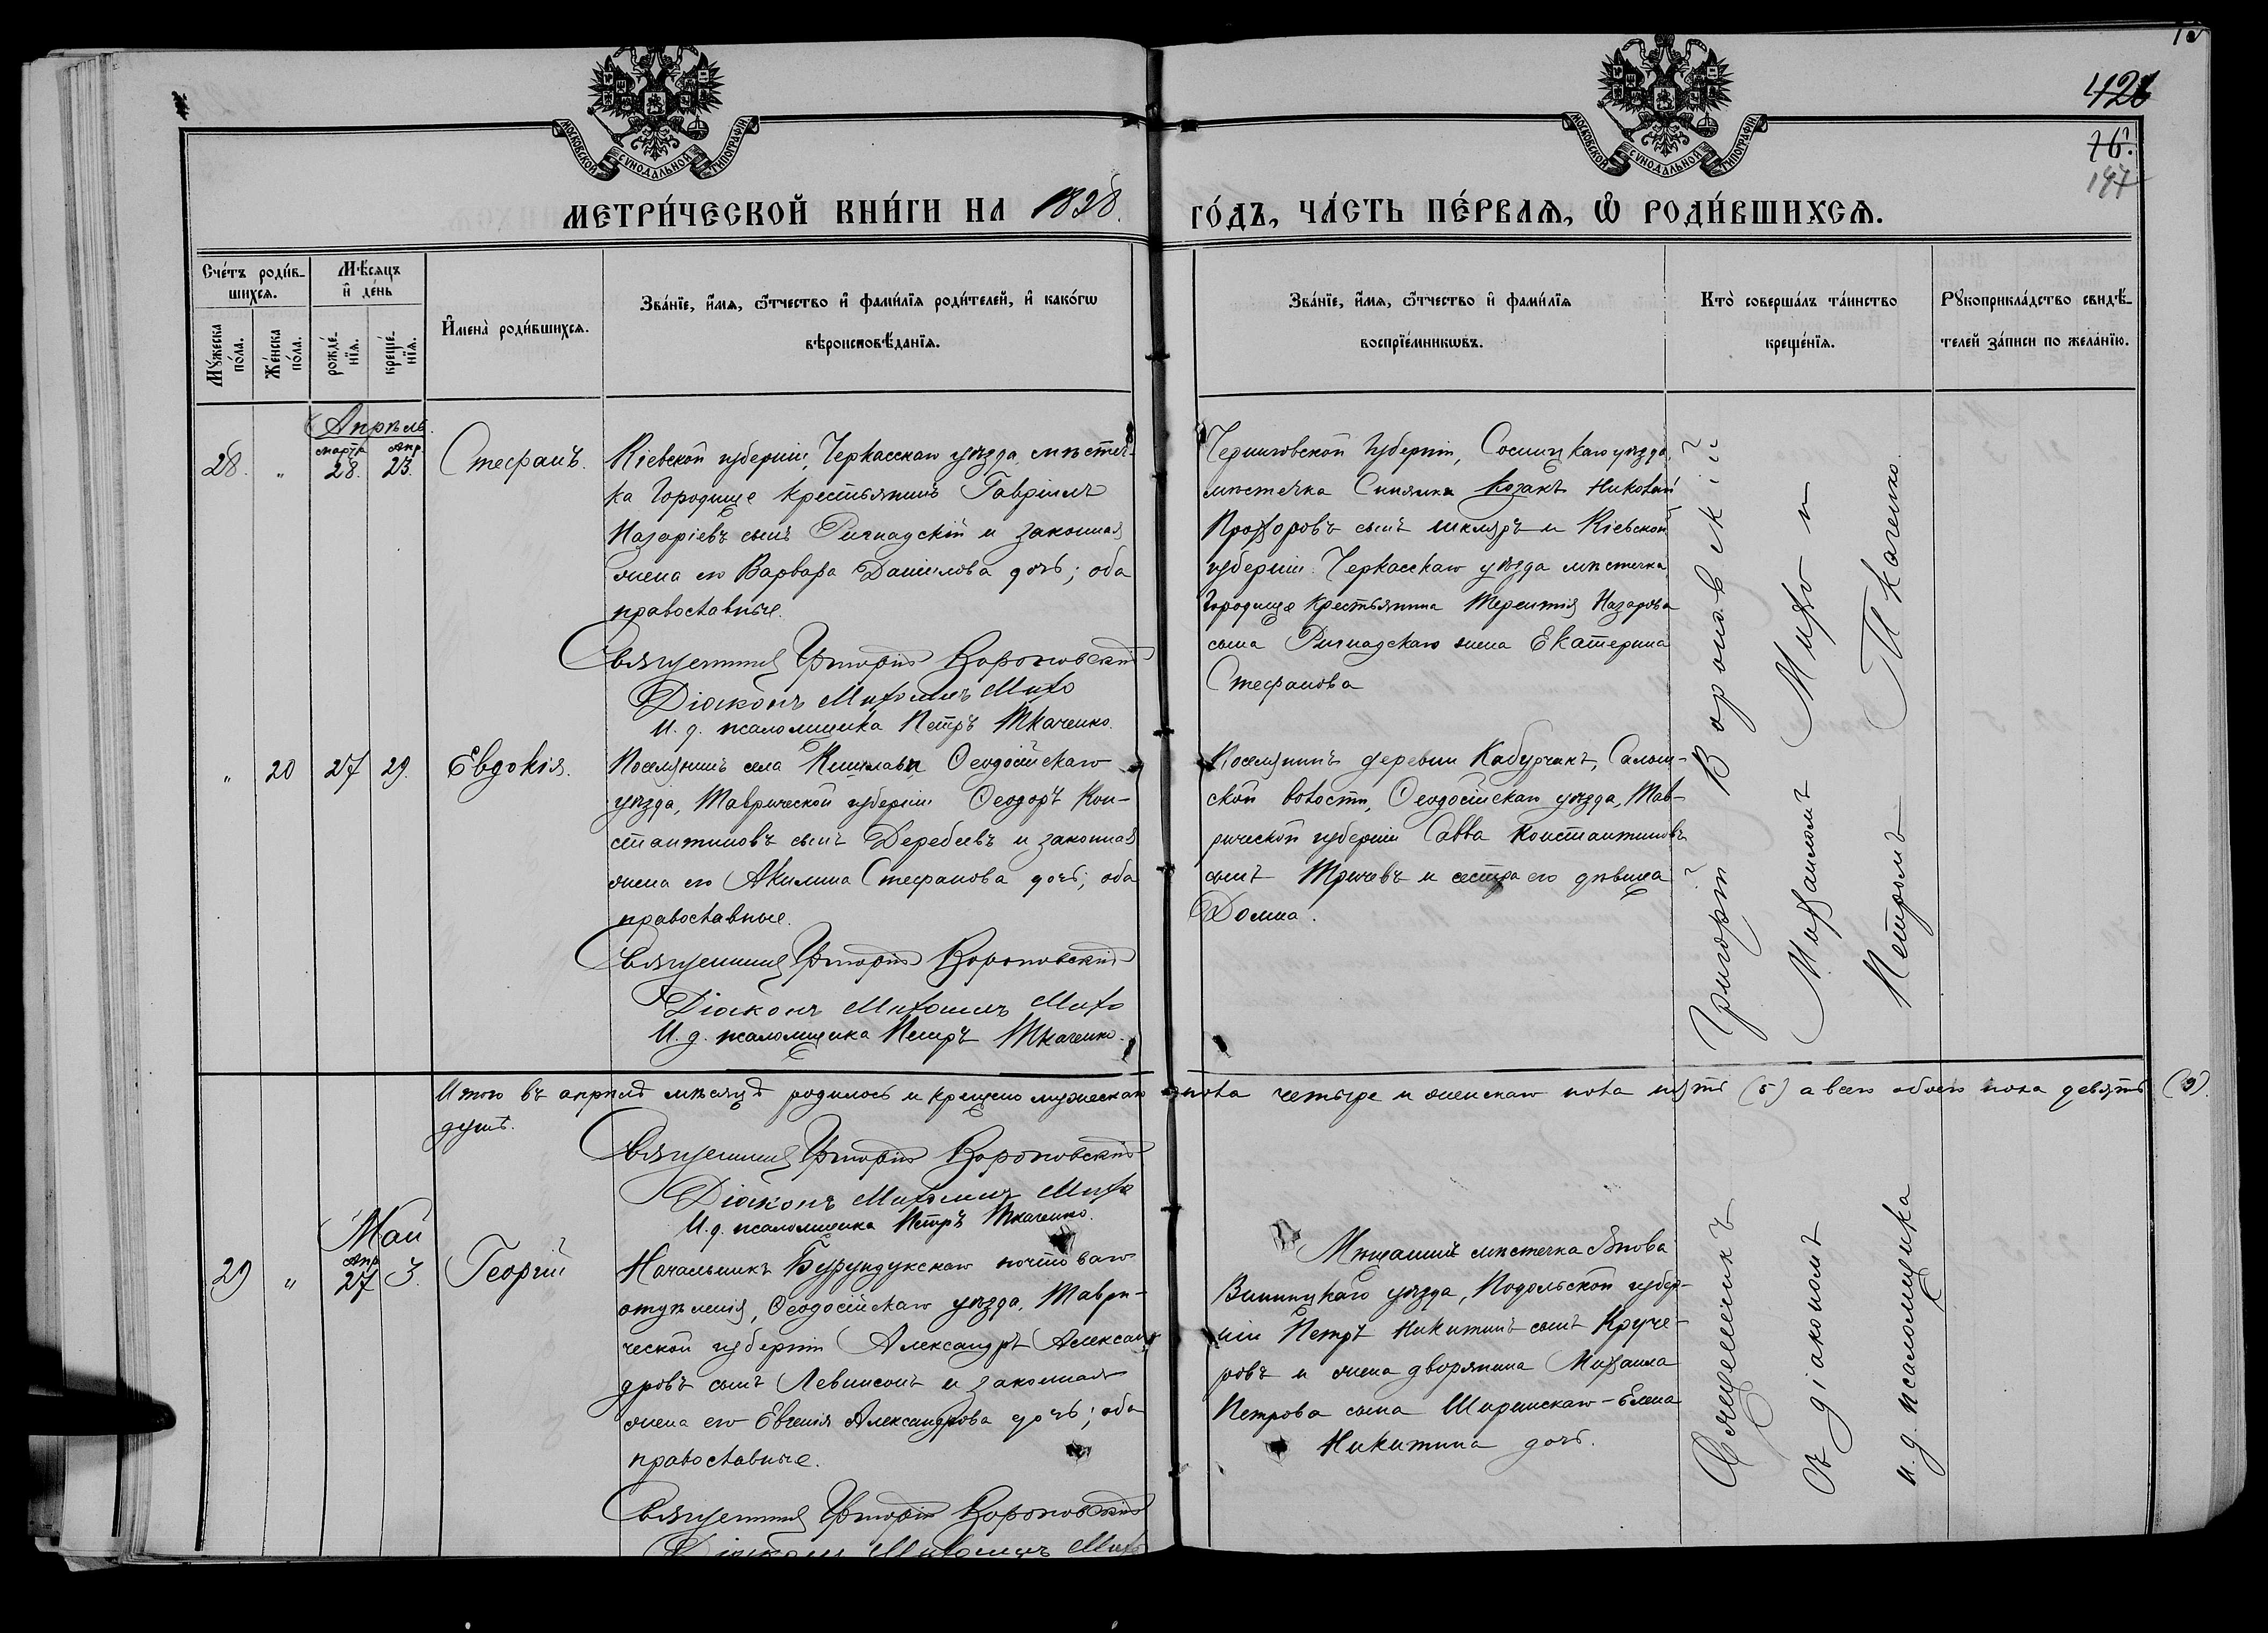 МОСКОВСКОЙ СУНОДАЛЬНОЙ ТИПОГРАФІИ
МОСКОВСКОЙ СУНОДАЛЬНОЙ ТИПОГРАФІИ
76.
МЕТРИ́ЧЕСКОЙ КНИ́ГИ НА 1898.
ГО́ДЪ, ЧА́СТЬ ПЕ́РВАѦ, Ѡ҆ РОДИ́ВШИХСѦ.
Сче́тъ роди́в-
шихсѧ.
Мꙋ́жеска по́ла.
Же́нска по́ла.
Мѣ́сѧцъ
и҆ де́нь
рожде́-
нїѧ.
креще́-
нїѧ.
И҆мена̀ роди́вшихсѧ.
Зва́нїе, и҆́мѧ, ѻ҆́тчество и҆ фами́лїѧ роди́телей, и҆ како́гѡ
вѣроисповѣ́данїѧ.
Зва́нїе, и҆́мѧ, ѻ҆́тчество и҆ фами́лїѧ
воспрїе́мникѡвъ.
Кто̀ соверша́лъ та́инство
креще́нїѧ.
Рꙋкоприкла́дство свидѣ́-
телей за́писи по жела́нїю.
Апрѣль.
28. „ марта 28. апр. 23. Стефанъ.
Кіевской губерніи, Черкасскаго уѣзда, мѣстеч-
ка Городище крестьянинъ Гавріилъ
Назаріевъ сынъ и законная
жена его Варвара Даніилова дочь; оба
православные.
Священникъ Григорій Вороновскій
Діаконъ Михаилъ Михо
И. д. псаломщика Петръ Ткаченко.
Черниговской губерніи, Сосницкаго уѣзда,
мѣстечка Синявка козакъ Николай
Прохоровъ сынъ Шкляръ и Кіевской
губерніи Черкасскаго уѣзда мѣстечка
Городище крестьянина Терентія Назарова
сына жена Екатерина
Стефанова
„ 20 27 29. Евдокія.
Поселянинъ села Кишлава Ѳеодосійскаго
уѣзда, Таврической губерніи Ѳеодоръ Кон-
стантиновъ сынъ Деребеевъ и законная
жена его Акилина Стефанова дочь; оба
православные.
Священникъ Григорій Вороновскій
Діаконъ Михаилъ Михо
И. д. псаломщика Петръ Ткаченко.
Поселянинъ деревни Кабурчакъ, Салын-
ской волости, Ѳеодосійскаго уѣзда, Тав-
рической губерніи Савва Константиновъ
сынъ и сестра его дѣвица
Домна.
Итого въ апрѣлѣ мѣсяцѣ родилось и крещено мужескаго пола четыре и женскаго пола пять (5) а всего обоего пола девять (9).
душъ.
Священникъ Григорій Вороновскій
Діаконъ Михаилъ Михо
И. д. псаломщика Петръ Ткаченко.
Май
29 „ апр. 27 3. Георгій
Начальникъ Бурундукскаго почтоваго
отдѣленія, Ѳеодосійскаго уѣзда, Таври-
ческой губерніи Александръ Алексан-
дровъ сынъ Левинсонъ и законная
жена его Евгенія Александрова дочь; оба
православные.
Священникъ Григорій Вороновскій
Діаконъ Михаилъ Михо
Мѣщанинъ мѣстечка Янова
Винницкаго уѣзда, Подольской губер-
ніи Петръ Никитинъ сынъ Круче-
ровъ и жена дворянина Михаила
Петрова сына Ширинскаго - Елена
Никитина дочь.
Священникъ Григорій Вороновскій
съ діакономъ Михаиломъ Михо и
и. д. псаломщика Петромъ Ткаченко.